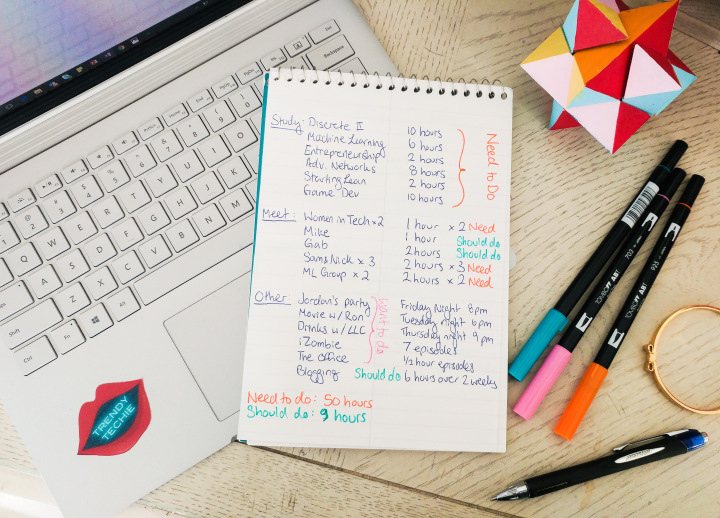 Study: Discrete II 10 hours
Machine Learning 6 hours
Entrepreneurship 2 hours
Adv. Networks 8 hours
Starting Lean 2 hours
Game Dev 10 hours
Need to Do
Meet: Women in Tech x2 1 hour x 2 Need
Mike 1 hour Should do
Gab 2 hours Should do
Sam & Nick x 3 2 hours x 3 Need
ML Group x 2 2 hours x 2 Need
Other Jordon's party Friday Night 8pm
Movie w/ Ron Tuesday night 6pm
Drinks w/ LLC Thursday night 9pm
iZombie 7 episodes
The Office 1/2 hour episodes
Want to do
Blogging Should do 6 hours over 2 weeks
Need to do: 50 hours
Should do: 9 hours
TRENDY
TECHIE
TOMBOW ABT
TOMBOW ABT
703
925
Backspace
Shift
Ctrl
Fn
Alt